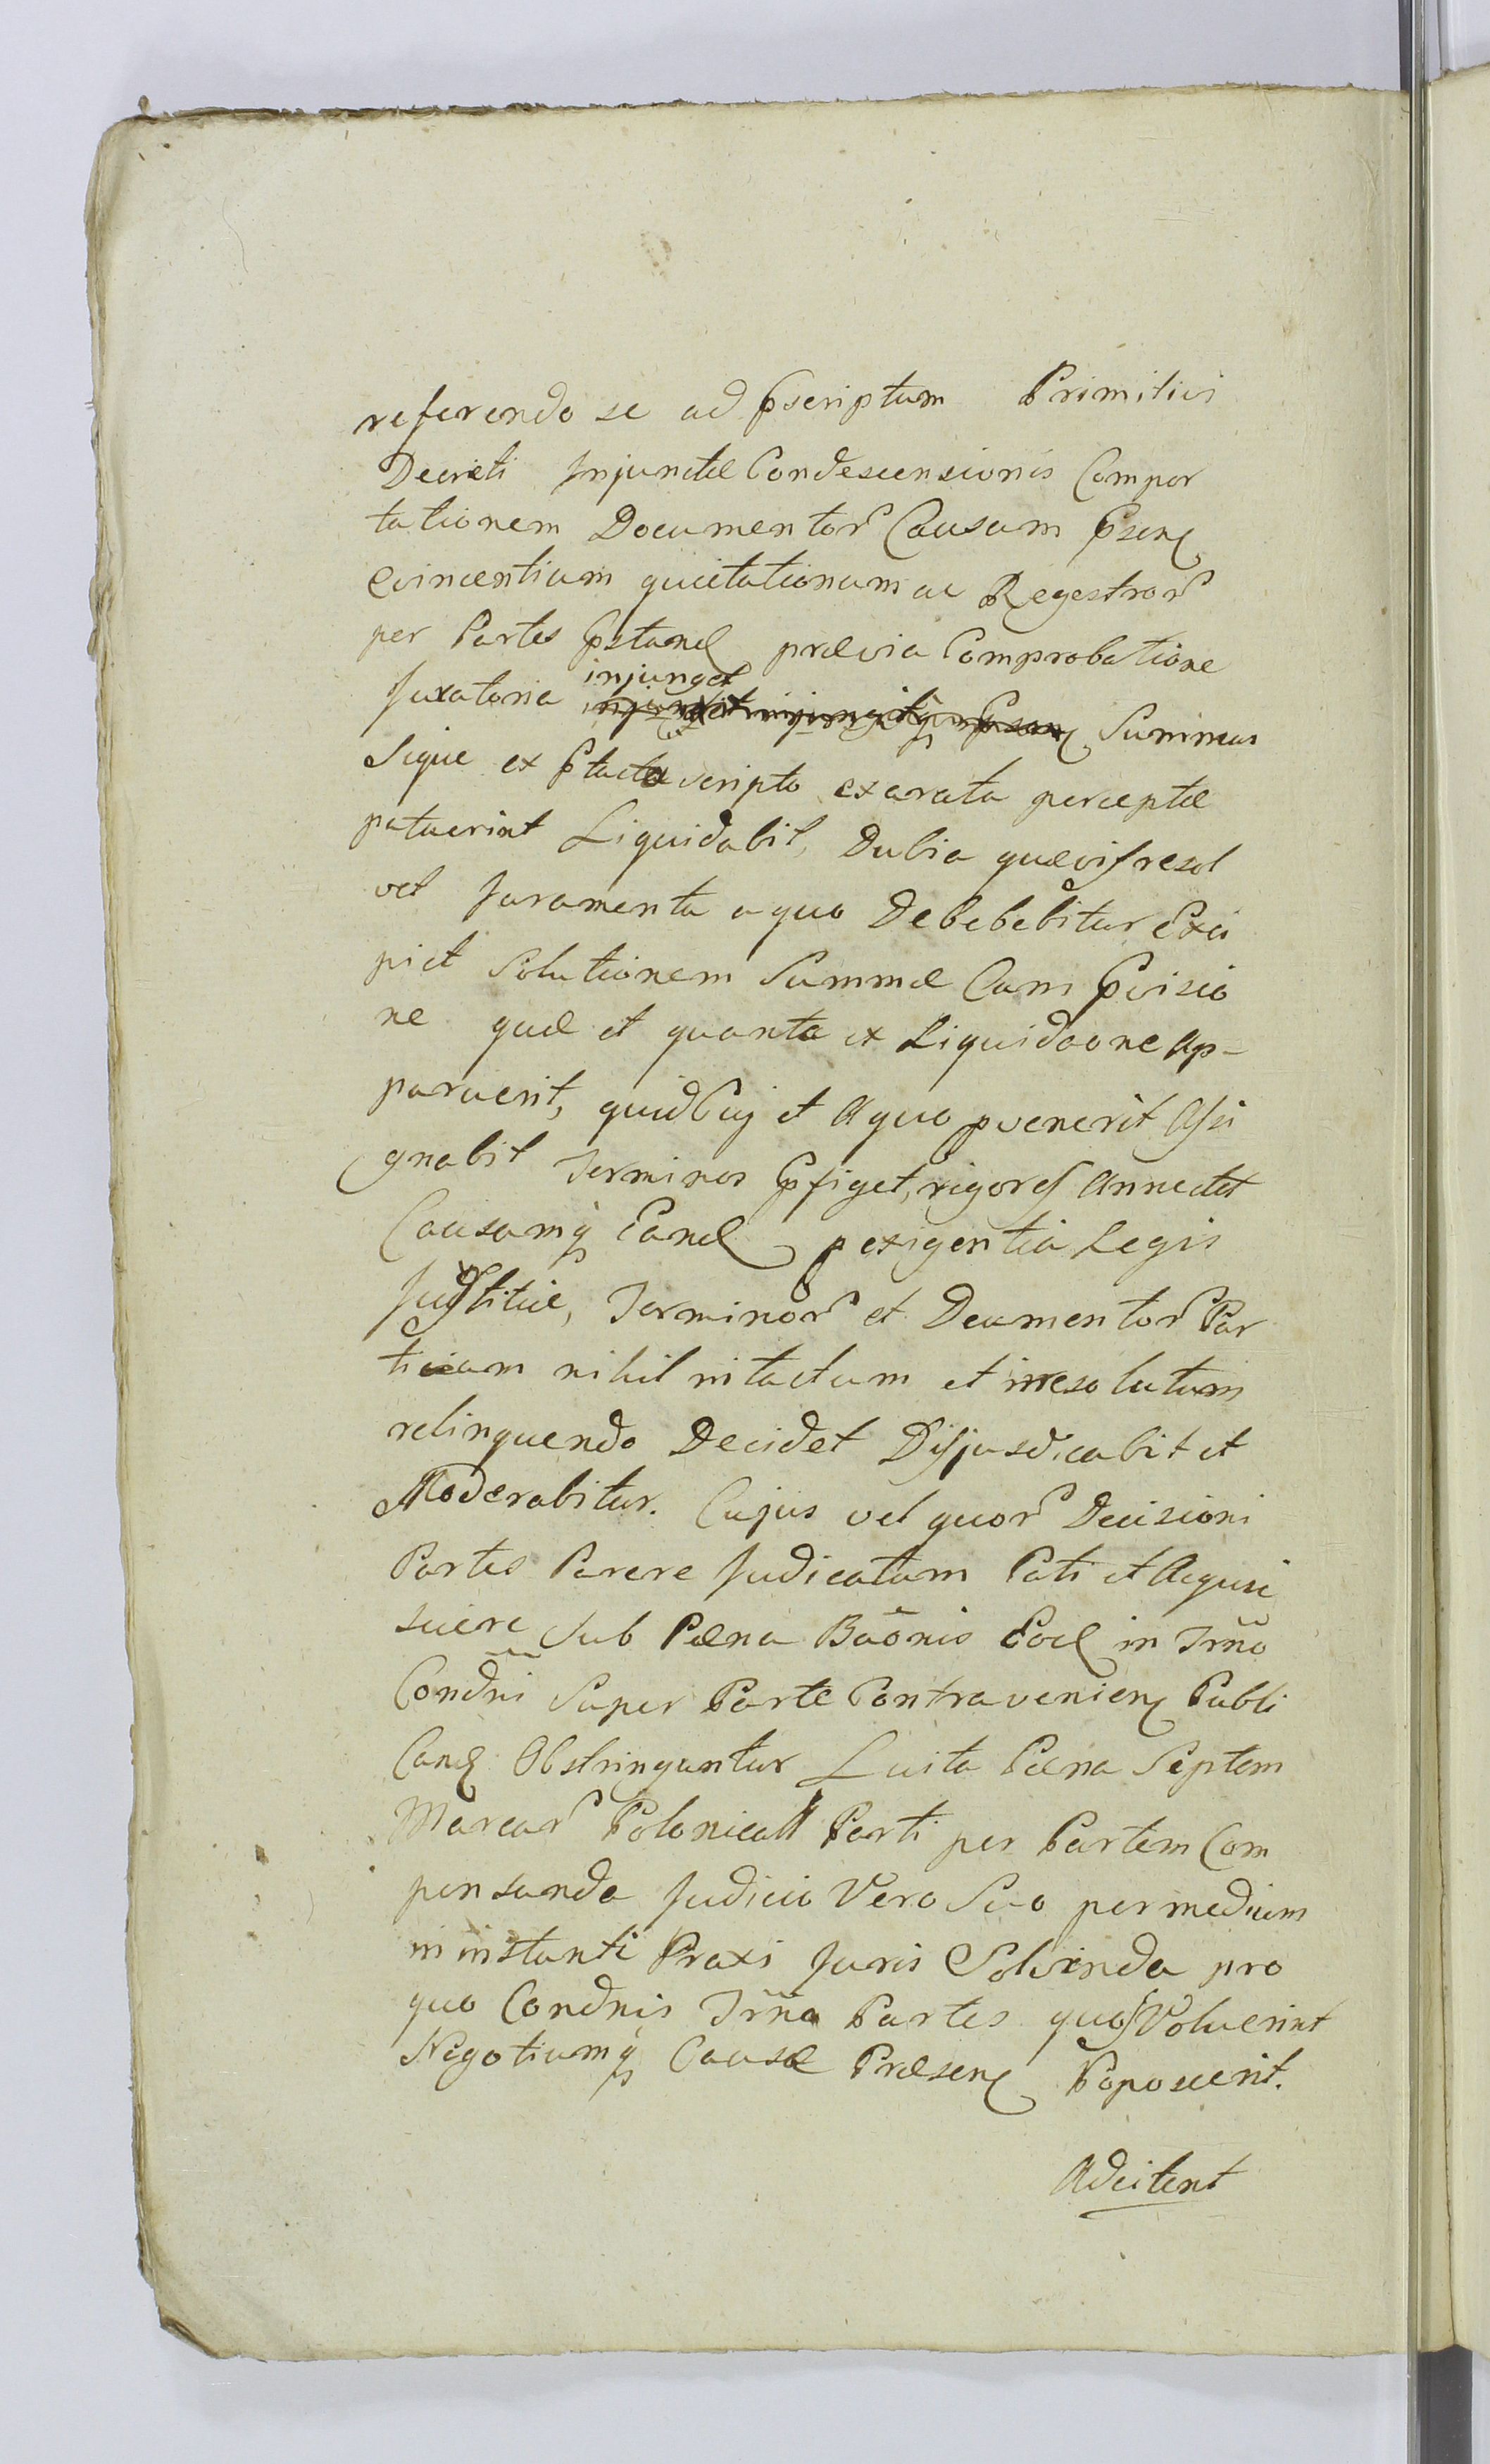 referendo se ad pscriptum Primitivi
Decreti Injunctæ Condescensionis Compor
tationem Documentor Causam psen
Evincentium quietationum ac Regestror
per Partes pstand prævia Comprobatione
injunget
Juratoria Summas
Sique ex ptacto scripto exarata perceptæ
patuerint Liquidabit, Dubia quævis resol
vet Juramenta a quo Debebebitur Exci
piet Solutionem Summæ Cum pvisio
ne quæ et quanta ex Liquidaone Ap-
paruerit, quid Cuj et A quo pvenerit Assi
gnabit Terminos pfiget, rigores Annectet
Causamq Eand p exigentia Legis
Justitiæ, Terminor et Dcumentor Par
tium nihil intactum et irresolutum
relinquendo Decidet Disjusdicabit et
Moderabitur. Cujus vel quor Decisioni
Partes Parere Judicatum Pati et Acquie
scere Sub Pæna Bãonis Eod in Trño
Condñi Super Parte Contravenien Publi
Cand Obstringuntur Luita Pæna Septem
Marcar Polonical Parti per Partem Com
pensanda Judicio Vero Suo per medium
in instanti Praxi Juris Solvenda pro
quo Condnis Trño Partes quos Voluerint
Negotiumq Causæ Præsen Poposcerit.
Adcitent